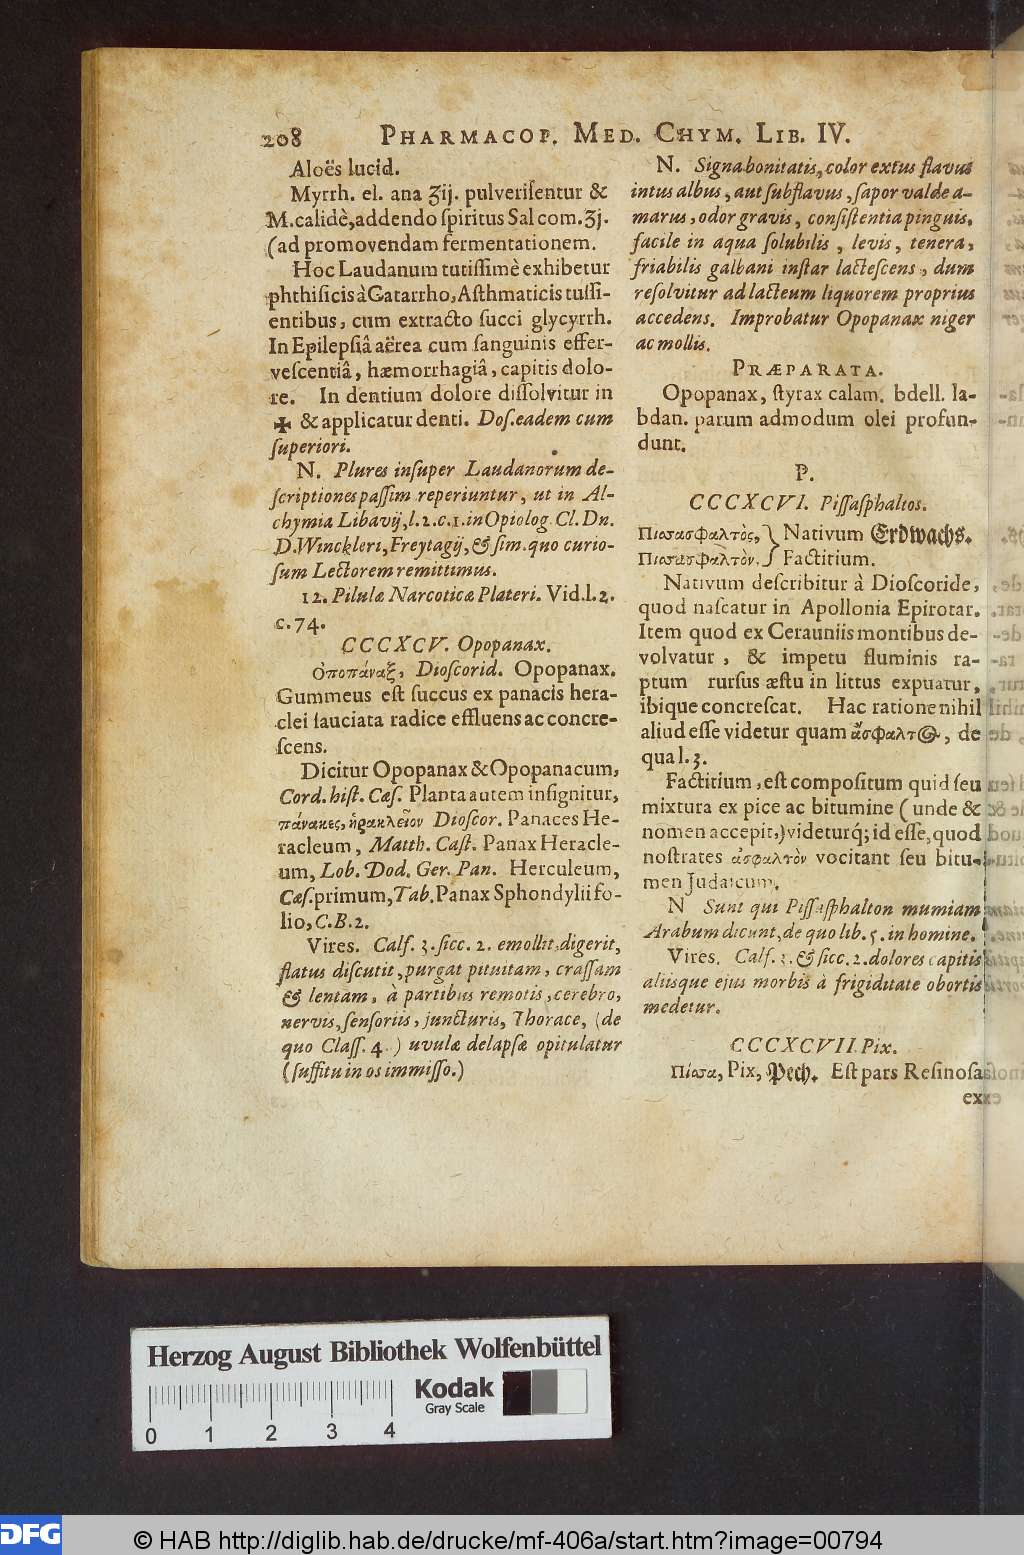 208 PHARMACOP. MED. CHYM. LIB. IV.
Aloës lucid.
Myrrh. el. ana ʒij. pulveriſentur &
M. calidè, addendo ſpiritus Sal com. ʒj.
(ad promovendam fermentationem.
Hoc Laudanum tutiſſimè exhibetur
phthiſicis à Catarrho, Aſthmaticis tuſſi-
entibus, cum extracto ſucci glycyrrh.
In Epilepſiâ aërea cum ſanguinis effer-
veſcentiâ, hæmorrhagiâ, capitis dolo-
re. In dentium dolore diſſolvitur in
✠ & applicatur denti. Doſ. eadem cum
ſuperiori.
N. Plures inſuper Laudanorum de-
ſcriptiones paſſim reperiuntur, ut in Al-
chymia Libavij, l. 2. c. 1. in Opiolog. Cl. Dn.
D. Winckleri, Freytagij, & ſim. quo curio-
ſum Lectorem remittimus.
12. Pilulæ Narcoticæ Plateri. Vid. l. 2.
c. 74.
CCCXCV. Opopanax.
ὀποπάναξ, Dioſcorid. Opopanax.
Gummeus eſt ſuccus ex panacis hera-
clei ſauciata radice effluens ac concre-
ſcens.
Dicitur Opopanax & Opopanacum,
Cord. hiſt. Cæſ. Planta autem inſignitur,
πάνακες, ἡρακλεῖον Dioſcor. Panaces He-
racleum, Matth. Caſt. Panax Heracle-
um, Lob. Dod. Ger. Pan. Herculeum,
Cæſ. primum, Tab. Panax Sphondylii fo-
lio, C. B. 2.
Vires. Calf. 3. ſicc. 2. emollit, digerit,
flatus diſcutit, purgat pituitam, craſſam
& lentam, à partibus remotis, cerebro,
nervis, ſenſoriis, juncturis, Thorace, (de
quo Claſſ. 4.) uvulæ delapſæ opitulatur
(ſuffitu in os immiſſo.)
N. Signa bonitatis, color extus flavus
intus albus, aut ſubflavus, ſapor valde a-
marus, odor gravis, conſiſtentia pinguis,
facile in aqua ſolubilis, levis, tenera,
friabilis galbani inſtar lacteſcens, dum
reſolvitur ad lacteum liquorem proprius
accedens. Improbatur Opopanax niger
ac mollis.
PRÆPARATA.
Opopanax, ſtyrax calam. bdell. la-
bdan. parum admodum olei profun-
dunt.
P.
CCCXCVI. Piſſaſphaltos.
Πισσασφαλτὸς, } Nativum Erdwachs.
Πισσασφαλτὸν. } Factitium.
Nativum deſcribitur à Dioſcoride,
quod naſcatur in Apollonia Epirotar.
Item quod ex Cerauniis montibus de-
volvatur, & impetu fluminis ra-
ptum rurſus æſtu in littus expuatur,
ibique concreſcat. Hac ratione nihil
aliud eſſe videtur quam ἄσφαλτος, de
qua l. 3.
Factitium, eſt compoſitum quid ſeu
mixtura ex pice ac bitumine (unde &
nomen accepit,) videturq́; id eſſe, quod
noſtrates ἀσφαλτὸν vocitant ſeu bitu-
men Judaicum.
N Sunt qui Piſſaſphalton mumiam
Arabum dicunt, de quo lib. 5. in homine.
Vires. Calf. 3. & ſicc. 2. dolores capitis
aliisque ejus morbis à frigiditate obortis
medetur.
CCCXCVII. Pix.
Πίσσα, Pix, Pech. Eſt pars Reſinoſa
exxe
Herzog August Bibliothek Wolfenbüttel
Kodak
Gray Scale
0 1 2 3 4
DFG © HAB http://diglib.hab.de/drucke/mf-406a/start.htm?image=00794